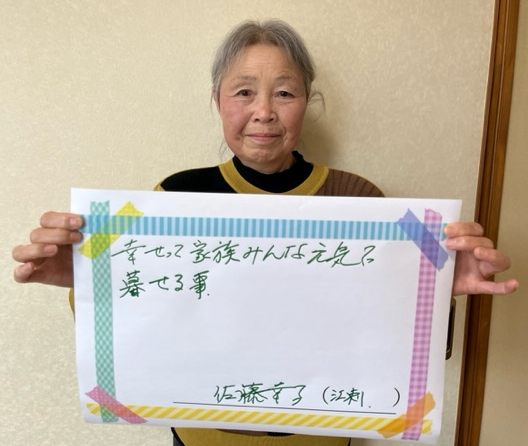 幸せって家族みんな元気で
暮せる事
佐藤幸子(江刺. )